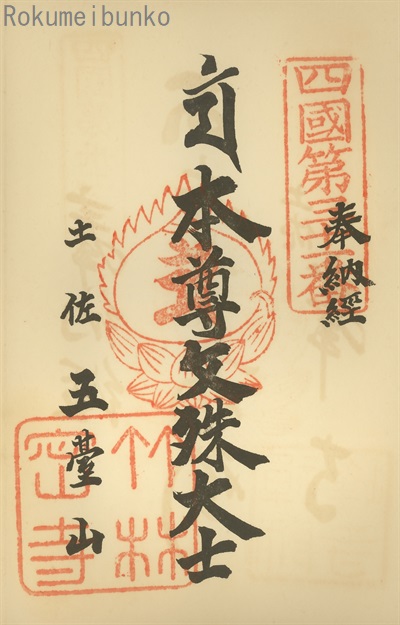 Rokumeibunko
四國第
奉納經
本尊文殊大士
土佐 五臺山
竹林
密寺